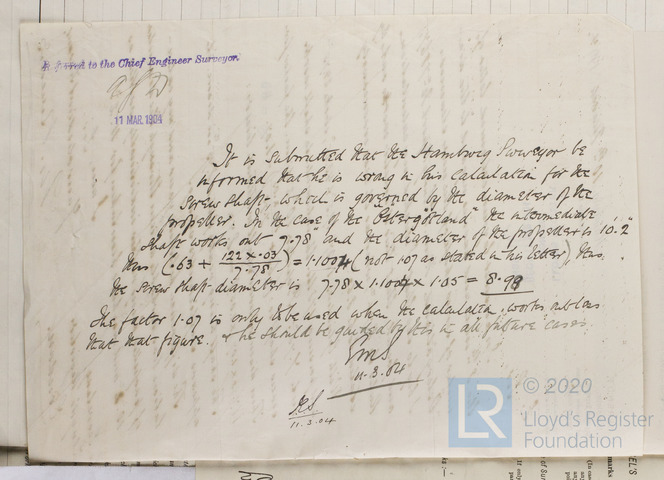 Referred to the Chief Engineer Surveyor.
11 MAR. 1904
It is submitted that the Hamburg Surveyor be
informed that he is wrong in his calculation for the
screw shaft, which is governed by the diameter of the
propeller. In the case of the "Östergötland" the intermediate
shaft works out 7.78" and the diameter of the propeller is 10.2"
thus (.63 + 122 x .03 / 7.78) = 1.1004 (not 1.07 as stated in his letter), thus
the screw shaft diameter is 7.78 x 1.1004 x 1.05 = 8.98
The factor 1.07 is only to be used when the calculation works out less
than that figure. & he should be guided by this in all future cases.
11.3.04
11.3.04
LR
© 2020
Lloyd's Register
Foundation